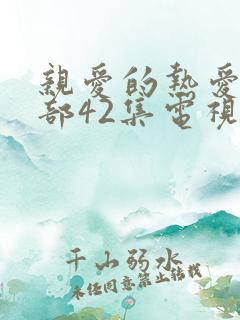 親愛的熱愛
部42集電視
千山弱水
未经同意禁止转载